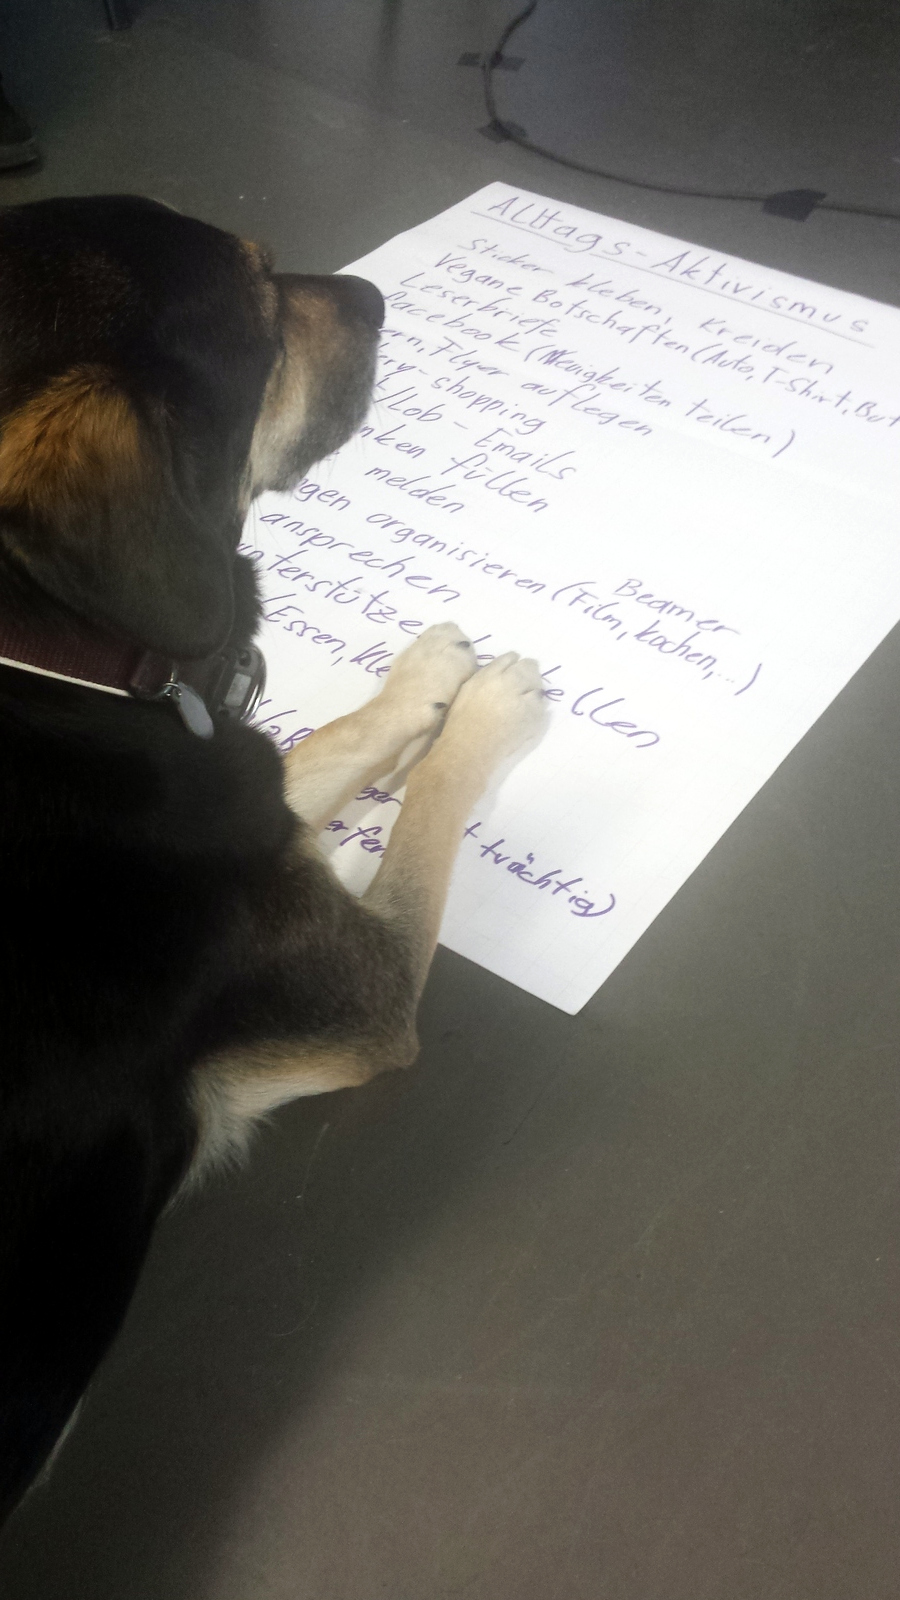 Alltags-Aktivismus
Sticker kleben, Kreiden
Vegane Botschaften (Auto, T-Shirt, But
Leserbriefe
facebook (Neuigkeiten teilen)
ern, Flyer auflegen
ry-shopping
/Lob-Emails
nken füllen
melden
gen organisieren (Film, kochen,...)
Beamer
ansprechen
unterstütze
(Essen, Kle
ellen
ger
t trächtig)
rfen